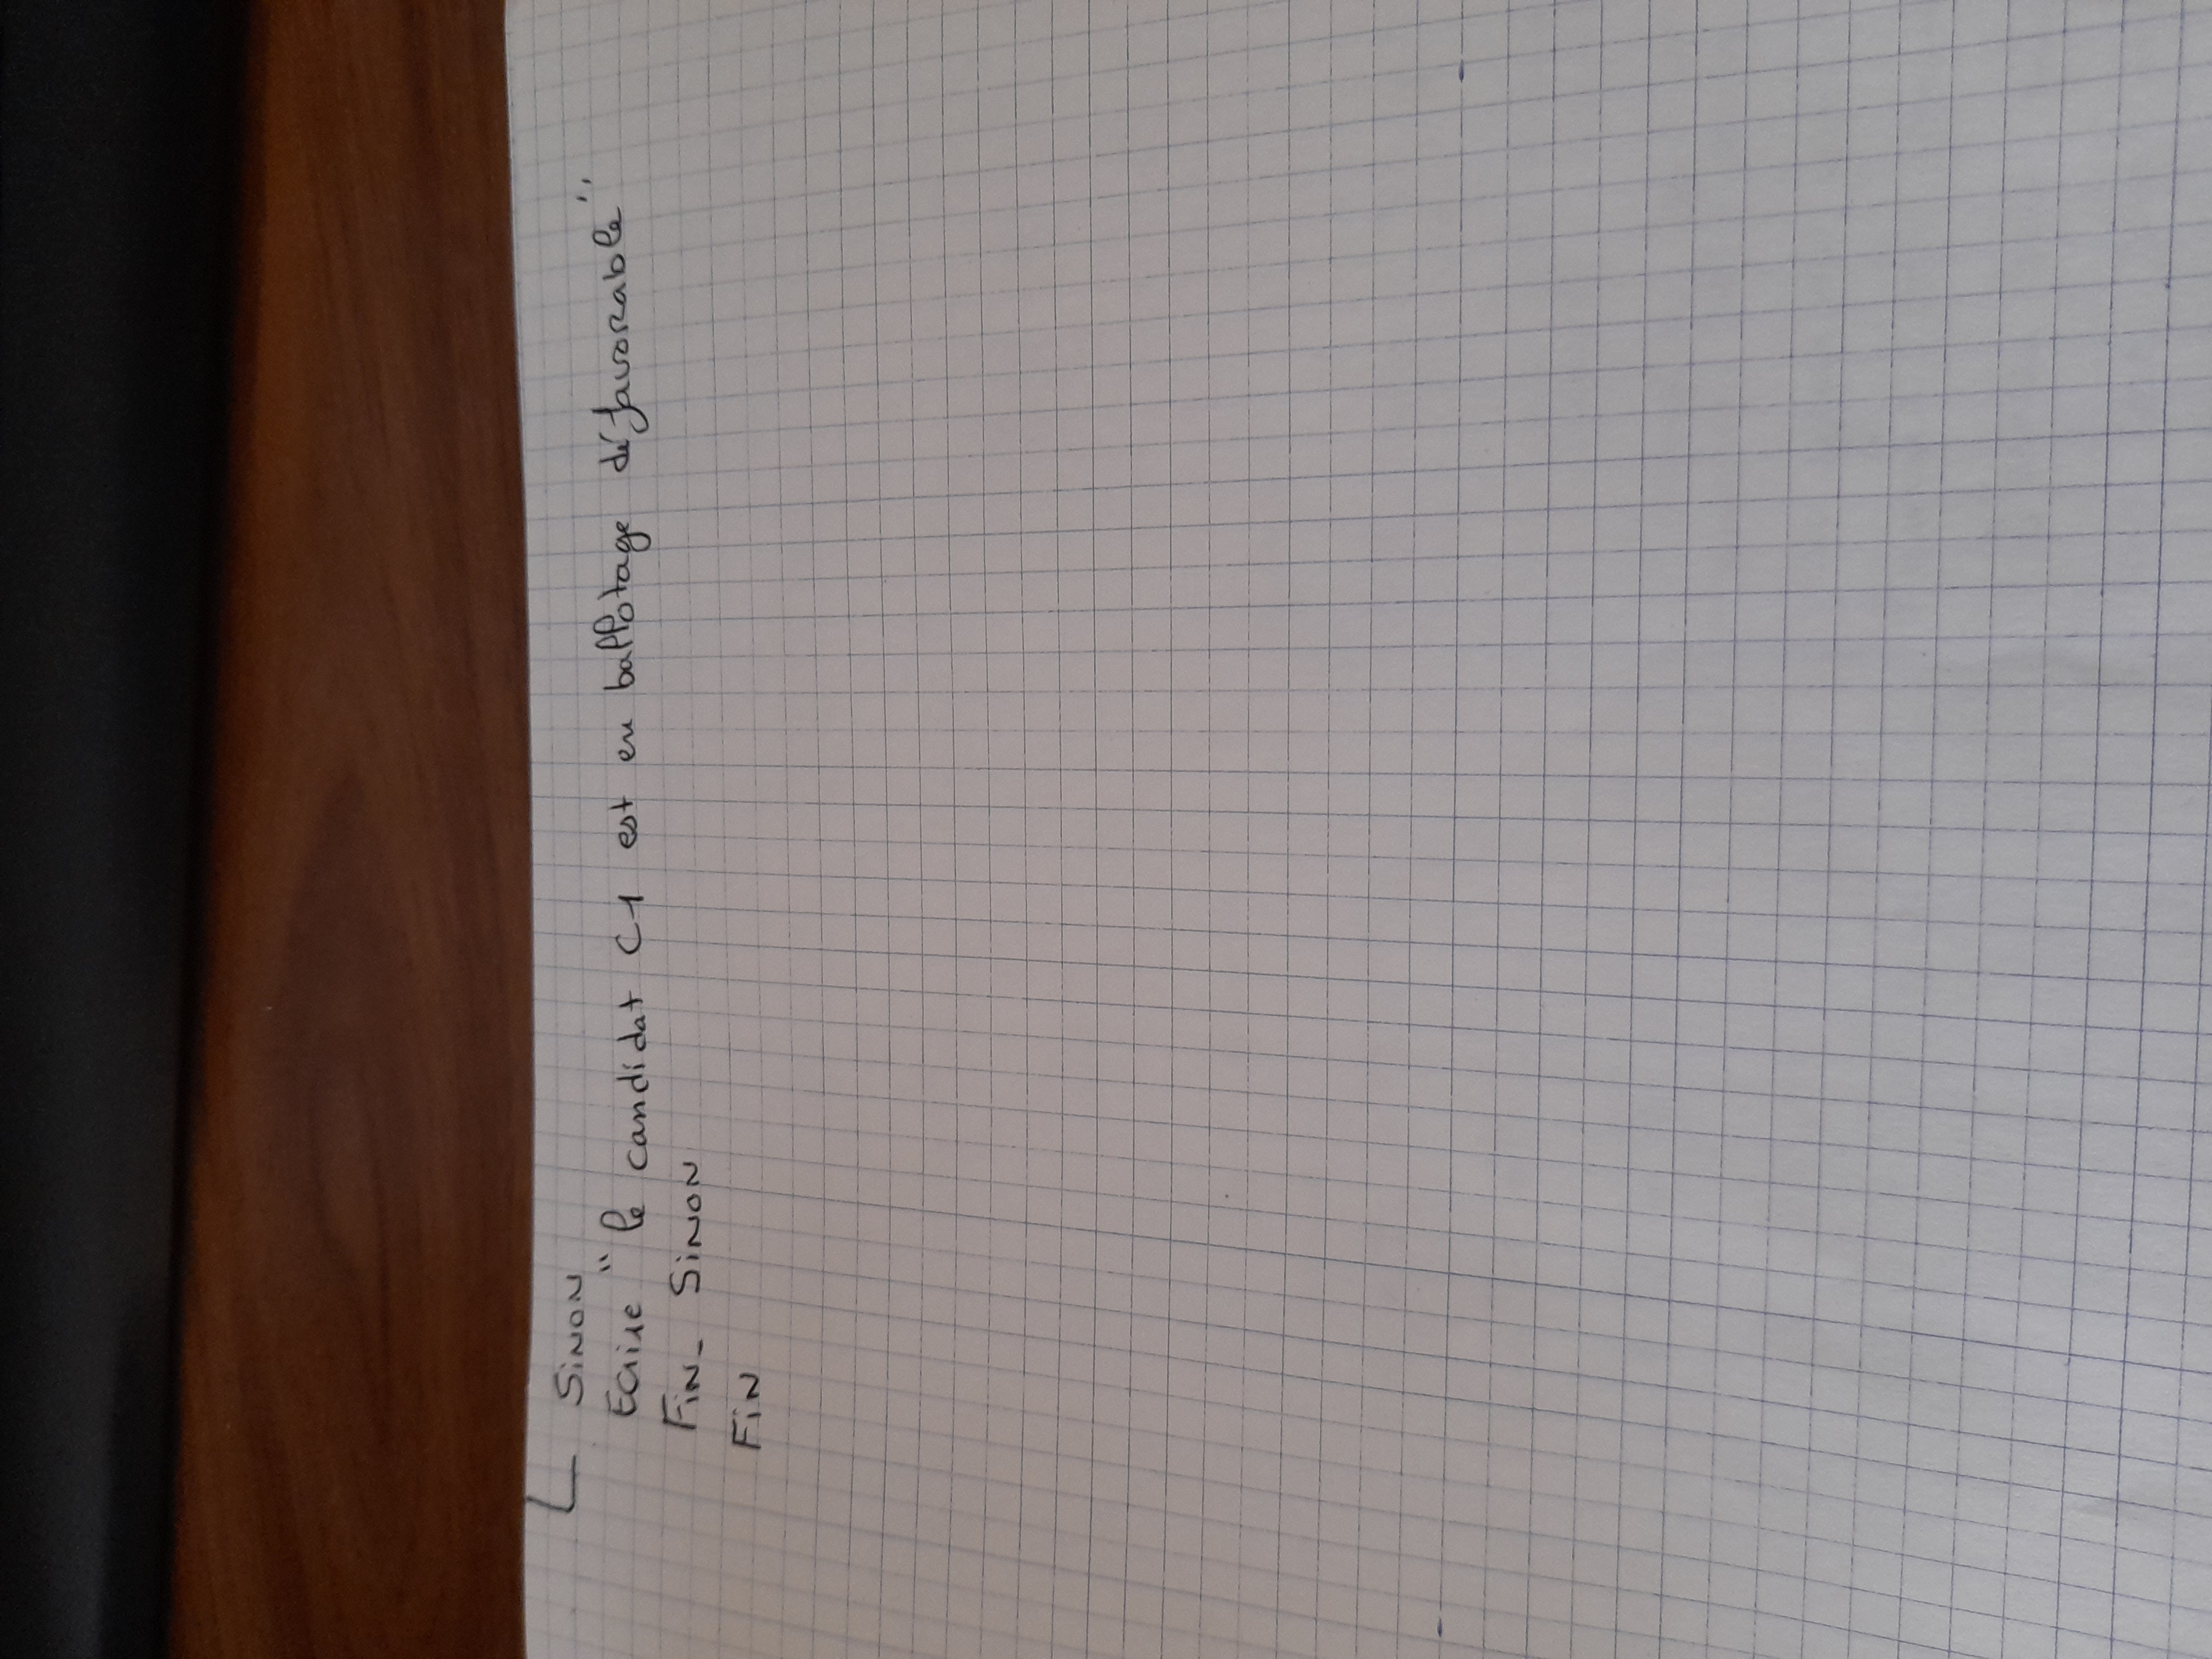 SiNON
Ecrire "le candidat C1 est en ballotage défavorable"
FiN_ SiNON
FiN